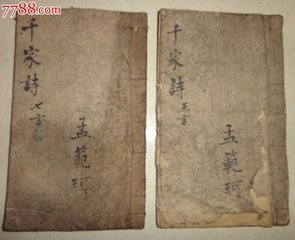 7788.com
千家詩 七言
孟範珂
千家詩 五言
孟範珂